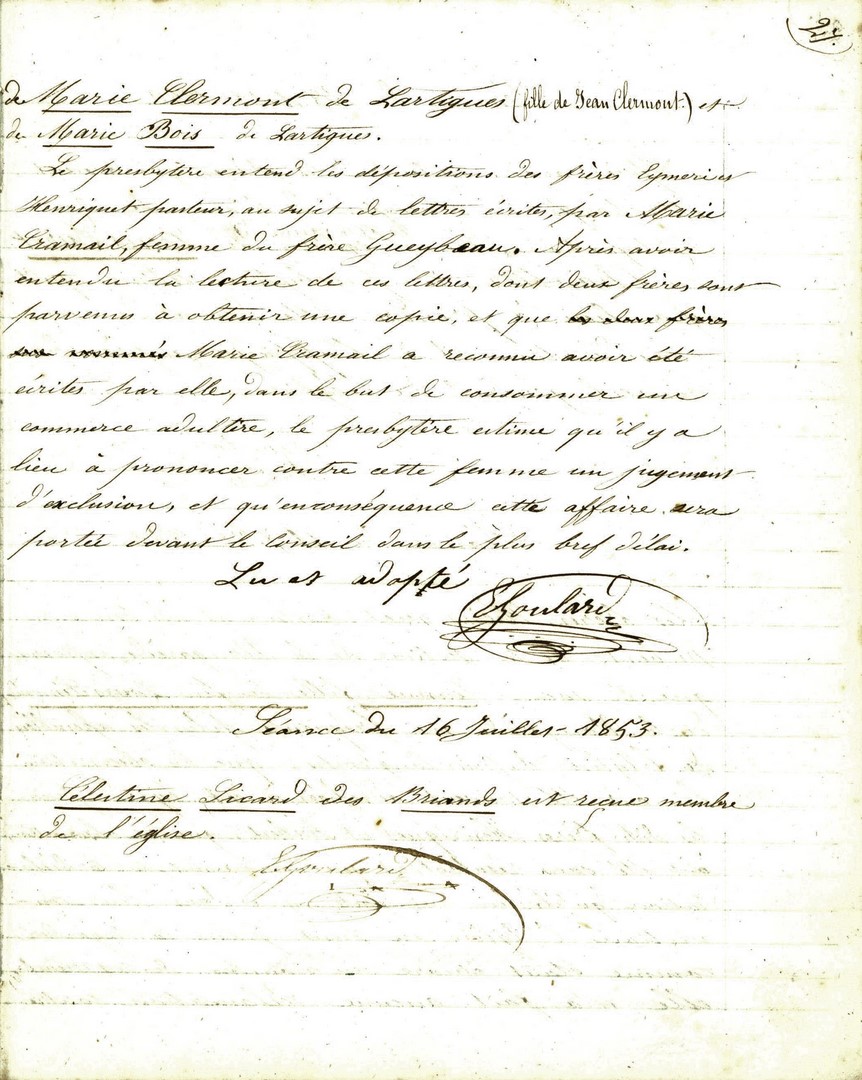 27.
de Marie Clermont de Lartigues (fille de Jean Clermont.) et
de Marie Bois de Lartigues.
Le presbytère entend les dépositions des frères Eymeri et
Henriquet pasteur, au sujet de lettres écrites, par Marie
Cramail, femme du frère Gueybeau. Après avoir
entendu la lecture de ces lettres, dont deux frères sont
parvenus à obtenir une copie, et que les deux frères
sus nommés Marie Cramail a reconnu avoir été
écrites par elle, dans le but de consommer un
commerce adultère, le presbytère estime qu'il y a
lieu à prononcer contre cette femme un jugement
d'exclusion, et qu'enconséquence cette affaire sera
portée devant le Conseil dans le plus bref délai.
Lu et adopté
EGoulard
Séance du 16 Juillet 1853.
Célestine Sicard des Briands est reçue membre
de l'église.
EGoulard